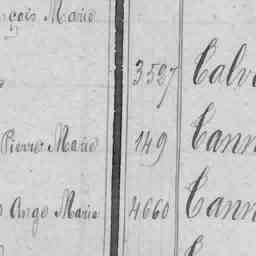 çois Marie
3527 Calv
Pierre Marie 149 Cann
Ange Marie 4660 Cann